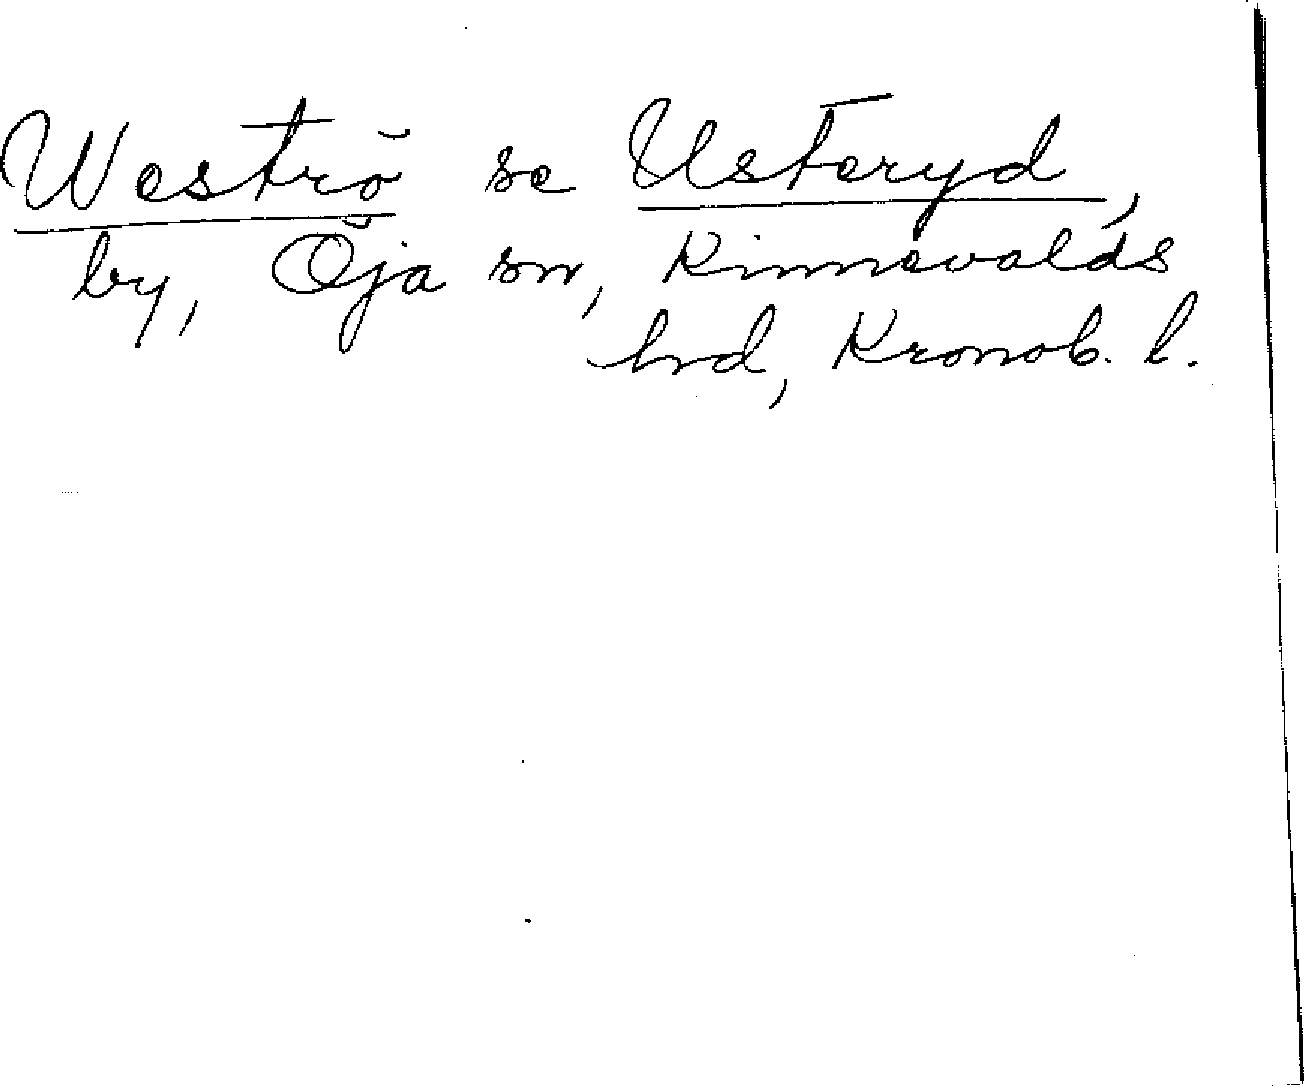 Weströ se Usteryd,
by, Öja sn, Kinnevalds
hrd, Kronob. l.